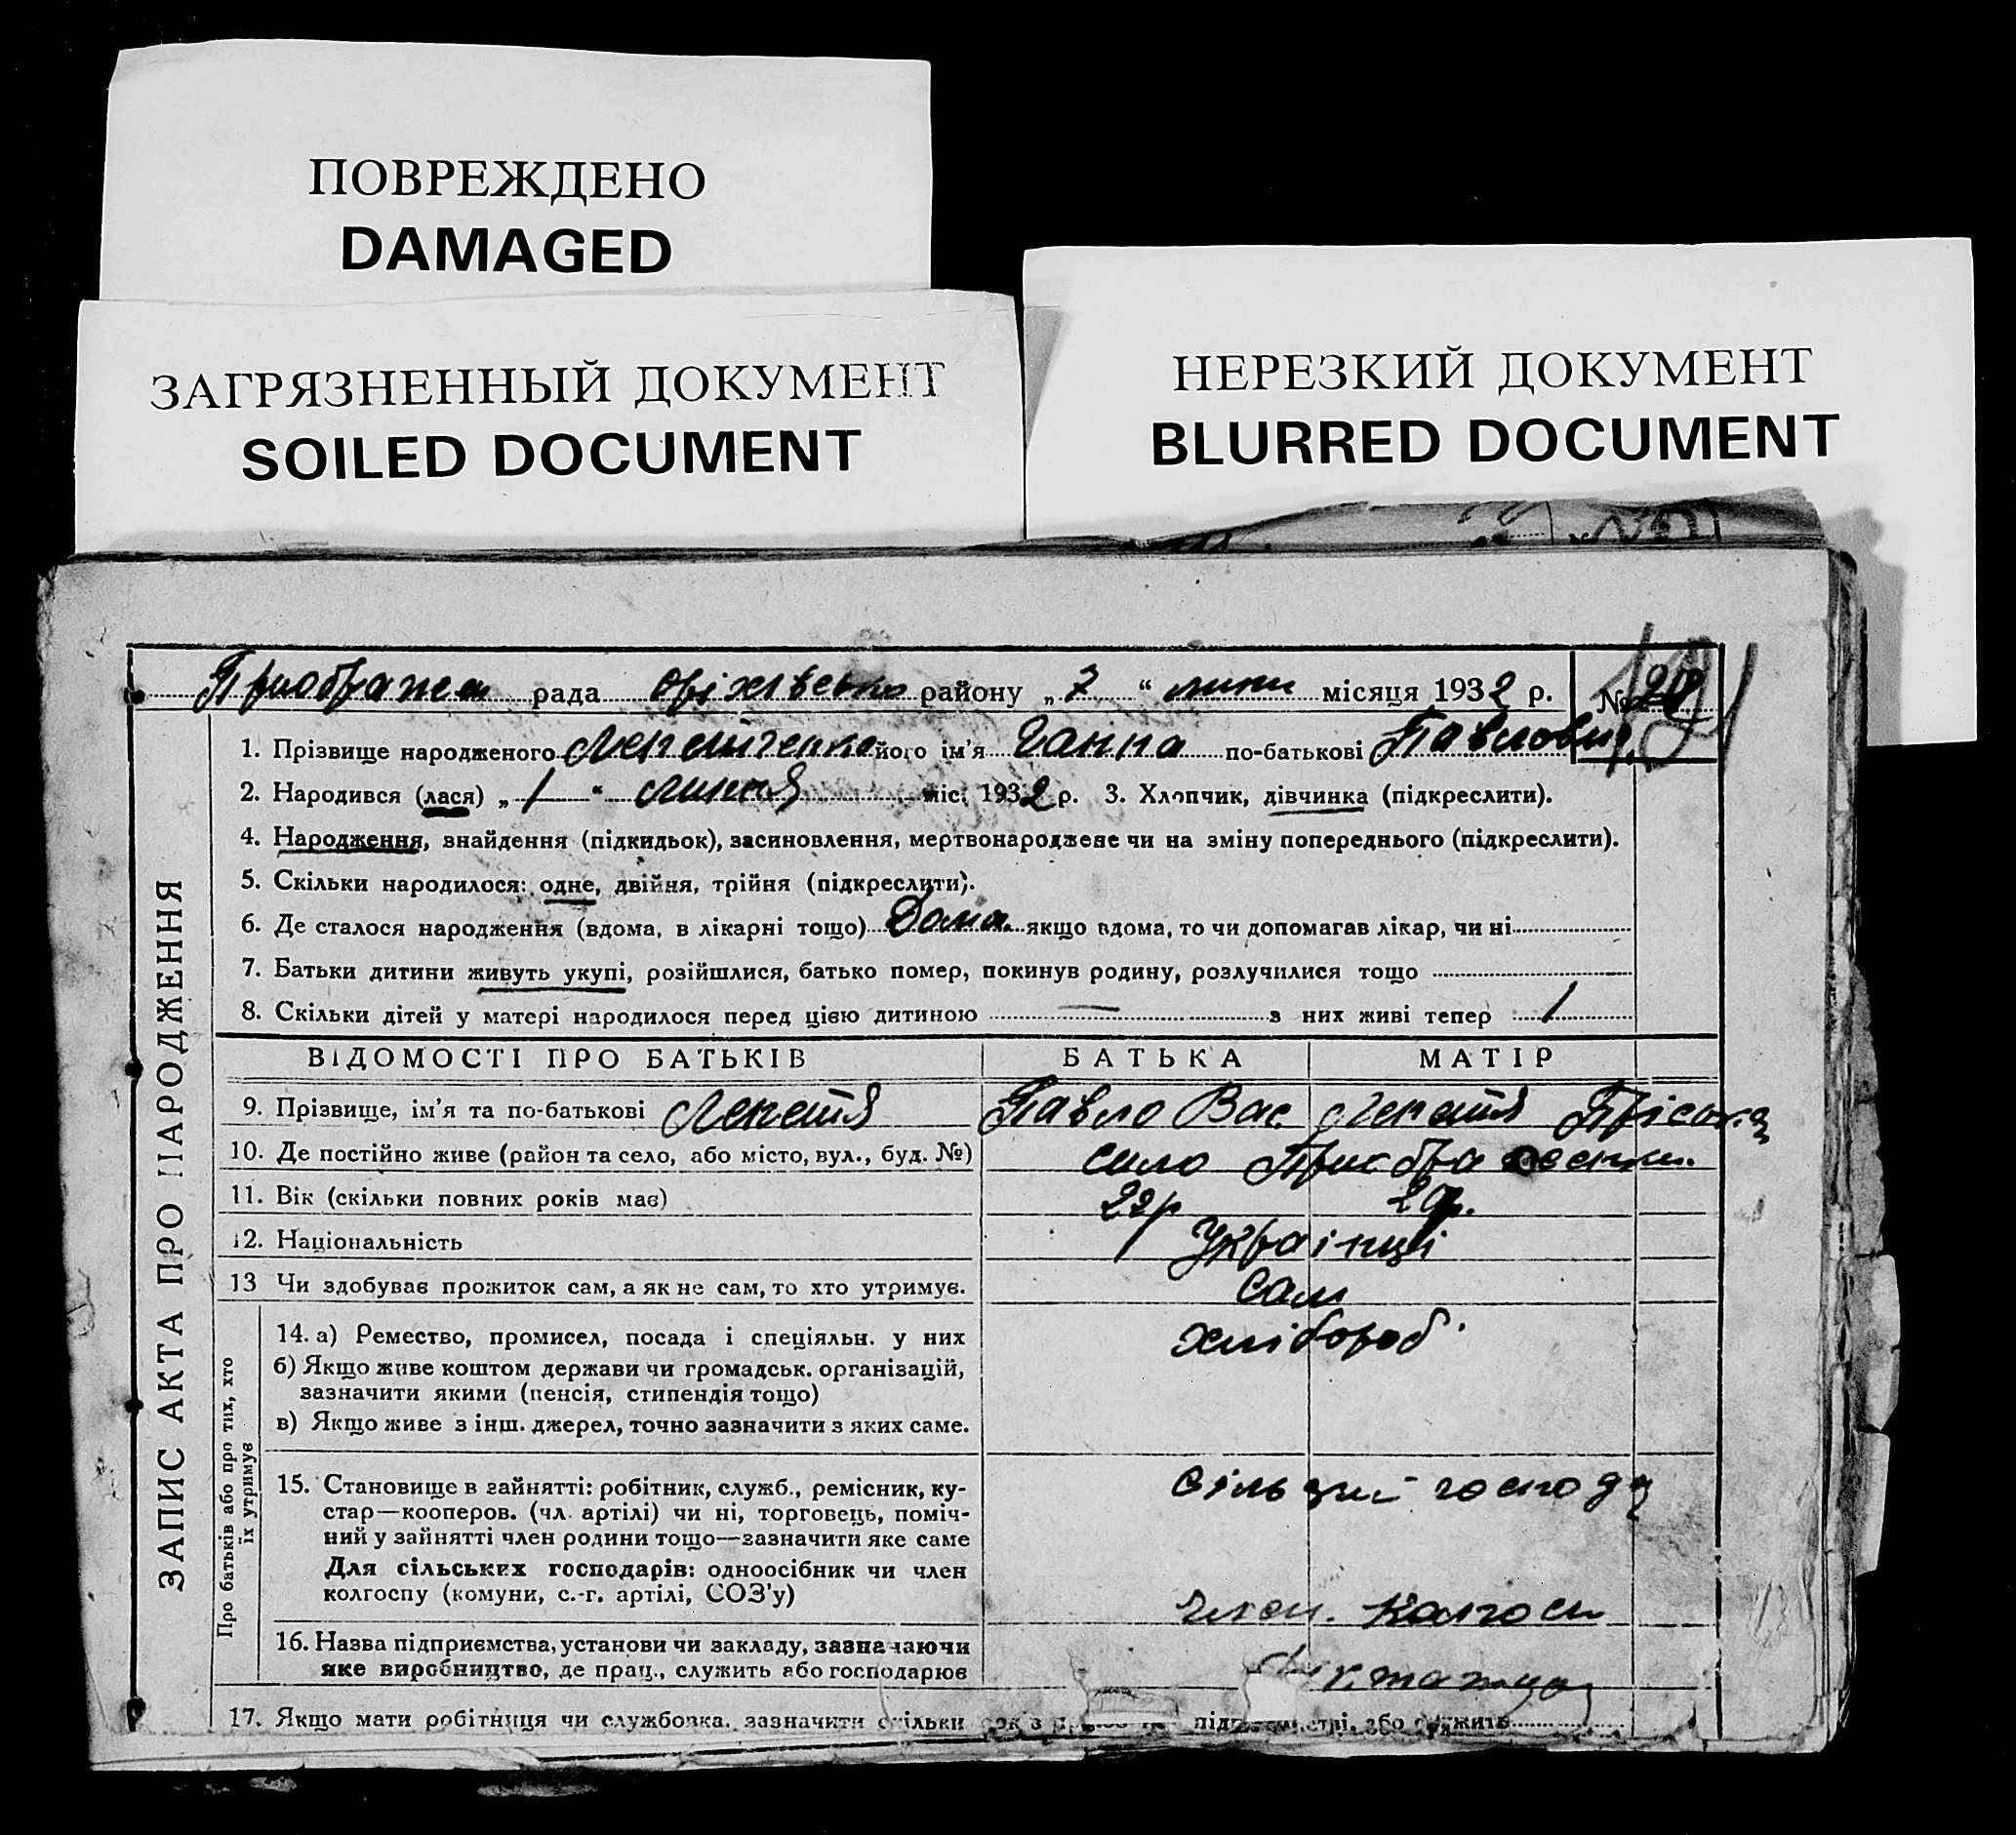 ПОВРЕЖДЕНО
DAMAGED
ЗАГРЯЗНЕННЫЙ ДОКУМЕНТ
SOILED DOCUMENT
НЕРЕЗКИЙ ДОКУМЕНТ
BLURRED DOCUMENT
рада Оріхівсько району „7“ липн місяця 1932 р. №
1. Прізвище народженого його ім'я Ганна по-батькові Павловн
2. Народився (лася) „1“ липня міс. 1932 р. 3. Хлопчик, дівчинка (підкреслити).
4. Народження, знайдення (підкидьок), засиновлення, мертвонароджене чи на зміну попереднього (підкреслити).
5. Скільки народилося: одне, двійня, трійня (підкреслити).
6. Де сталося народження (вдома, в лікарні тощо) Дома якщо вдома, то чи допомагав лікар, чи ні
7. Батьки дитини живуть укупі, розійшлися, батько помер, покинув родину, розлучилися тощо
8. Скільки дітей у матері народилося перед цією дитиною — з них живі тепер 1
ВІДОМОСТІ ПРО БАТЬКІВ БАТЬКА МАТІР
9. Прізвище, ім'я та по-батькові Лепетя Павло Вас. Лепетя Пріська
10. Де постійно живе (район та село, або місто, вул., буд. №) село
11. Вік (скільки повних років має) 22р
12. Національність Українці
13 Чи здобуває прожиток сам, а як не сам, то хто утримує. Сам
14. а) Ремество, промисел, посада і спеціяльн. у них хлібороб
б) Якщо живе коштом держави чи громадськ. організацій,
зазначити якими (пенсія, стипендія тощо)
в) Якщо живе з інш. джерел, точно зазначити з яких саме.
15. Становище в зайнятті: робітник, служб., ремісник, ку-
стар—кооперов. (чл. артілі) чи ні, торговець, поміч-
ний у зайнятті член родини тощо—зазначити яке саме
Для сільських господарів: одноосібник чи член
колгоспу (комуни, с.-г. артілі, СОЗ'у)
16. Назва підприємства, установи чи закладу, зазначаючи
яке виробництво, де прац., служить або господарює
17. Якщо мати робітниця чи службовка, зазначити скільки
ЗАПИС АКТА ПРО НАРОДЖЕННЯ
Про батьків або про тих, хто
їх утримує